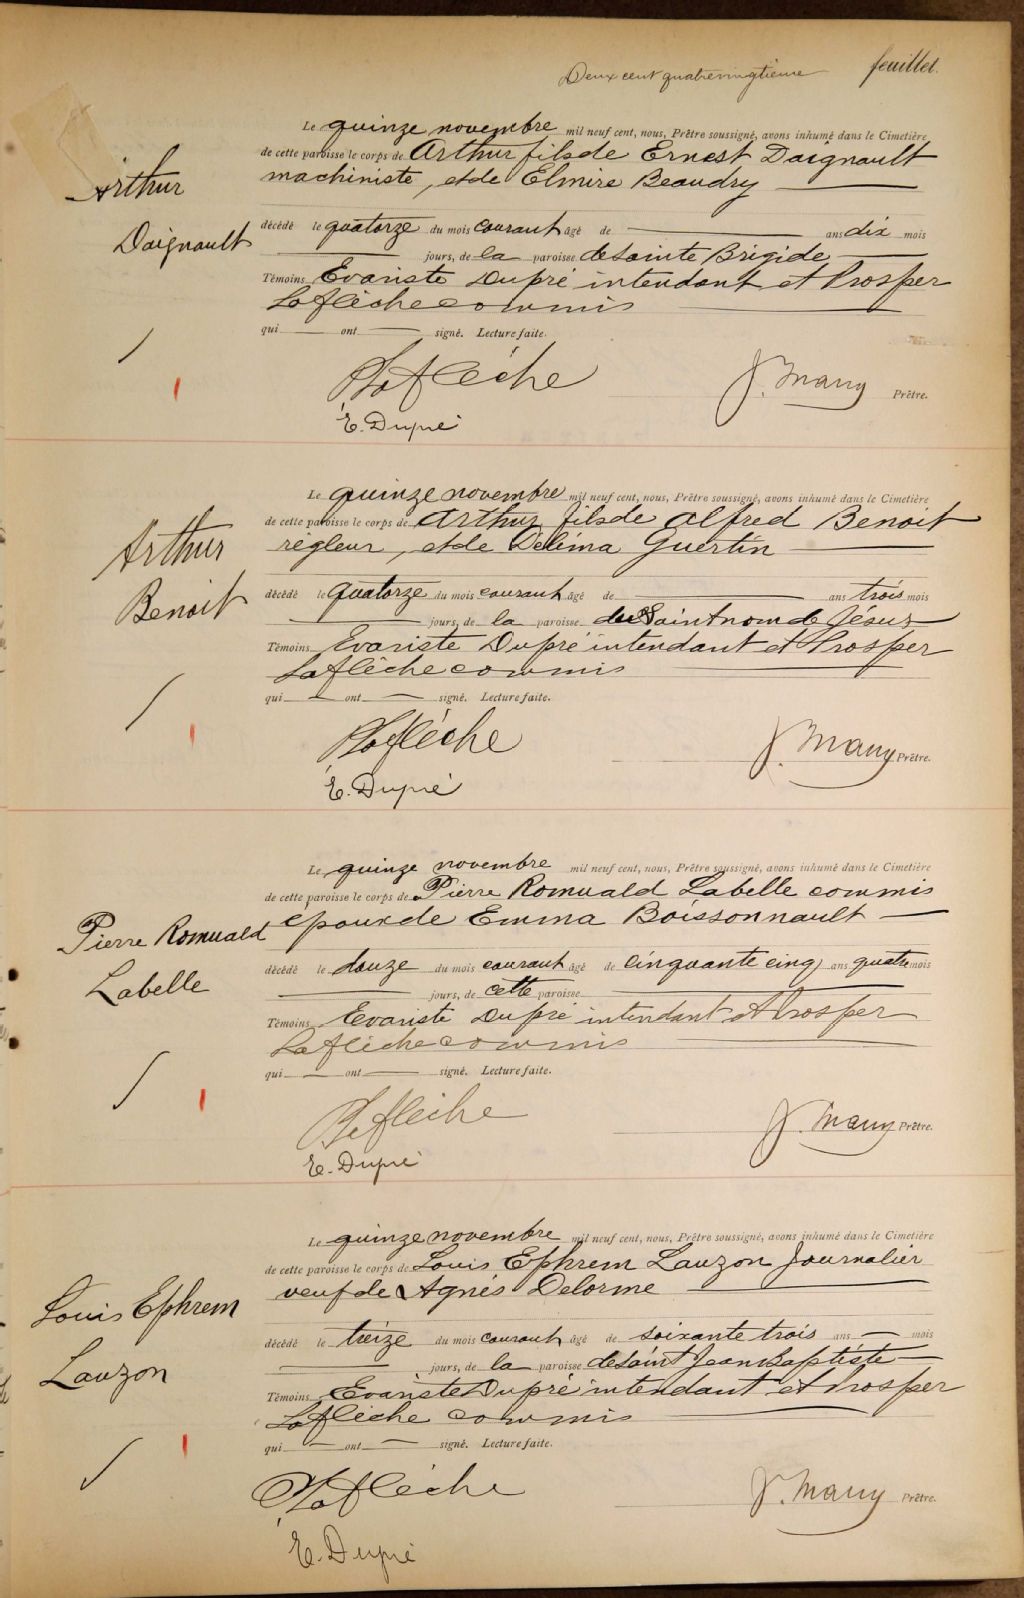 Deux cent quatrevingtième feuillet.
Le quinze novembre mil neuf cent, nous, Prêtre soussigné, avons inhumé dans le Cimetière
de cette paroisse le corps de Arthur fils de Ernest Daignault
machiniste, et de Elmire Beaudry
Arthur
Daignault
décédé le quatorze du mois courant âgé de ans dix mois
jours, de la paroisse de Sainte Brigide
Témoins Evariste Dupré intendant et Prosper
Laflèche commis
qui ont signé. Lecture faite.
PLaflèche
J. Many Prêtre.
E. Dupré
Le quinze novembre mil neuf cent, nous, Prêtre soussigné, avons inhumé dans le Cimetière
de cette paroisse le corps de Arthur fils de Alfred Benoit
régleur, et de Délima Guertin
Arthur
Benoit
décédé le quatorze du mois courant âgé de ans trois mois
jours, de la paroisse du Saint nom de Jésus
Témoins Evariste Dupré intendant et Prosper
Laflèche commis
qui ont signé. Lecture faite.
PLaflèche
J. Many Prêtre.
E. Dupré
Le quinze novembre mil neuf cent, nous, Prêtre soussigné, avons inhumé dans le Cimetière
de cette paroisse le corps de Pierre Romuald Labelle commis
époux de Emma Boissonnault
Pierre Romuald
Labelle
décédé le douze du mois courant âgé de cinquante cinq ans quatre mois
jours, de cette paroisse
Témoins Evariste Dupré intendant et Prosper
Laflèche commis
qui ont signé. Lecture faite.
PLaflèche
J. Many Prêtre.
E. Dupré
Le quinze novembre mil neuf cent, nous, Prêtre soussigné, avons inhumé dans le Cimetière
de cette paroisse le corps de Louis Ephrem Lauzon Journalier
veuf de Agnès Delorme
Louis Ephrem
Lauzon
décédé le treize du mois courant âgé de soixante trois ans mois
jours, de la paroisse de Saint Jean Baptiste
Témoins Evariste Dupré intendant et Prosper
Laflèche commis
qui ont signé. Lecture faite.
PLaflèche
J. Many Prêtre.
E. Dupré